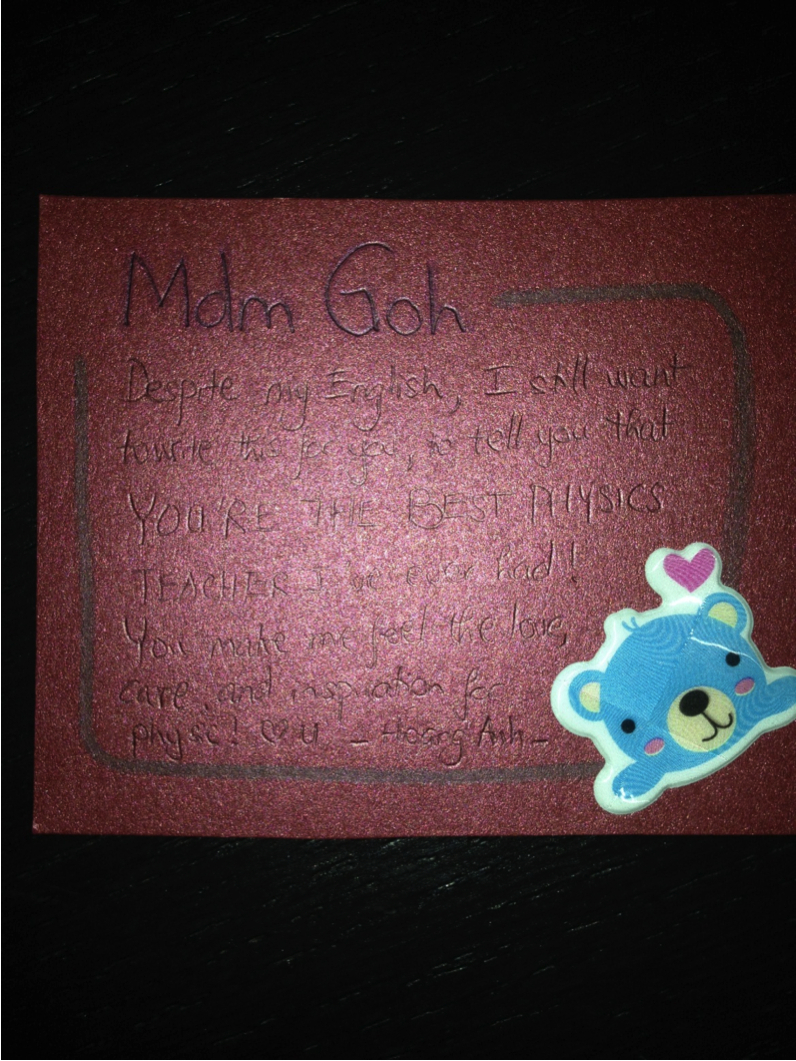 Mdm Goh
Despite my English, I still want
to write this for you, to tell you that
YOU'RE THE BEST PHYSICS
TEACHER I've ever had!
You make me feel the love,
care, and inspiration for
physic! ♡ U - Hoang Anh -